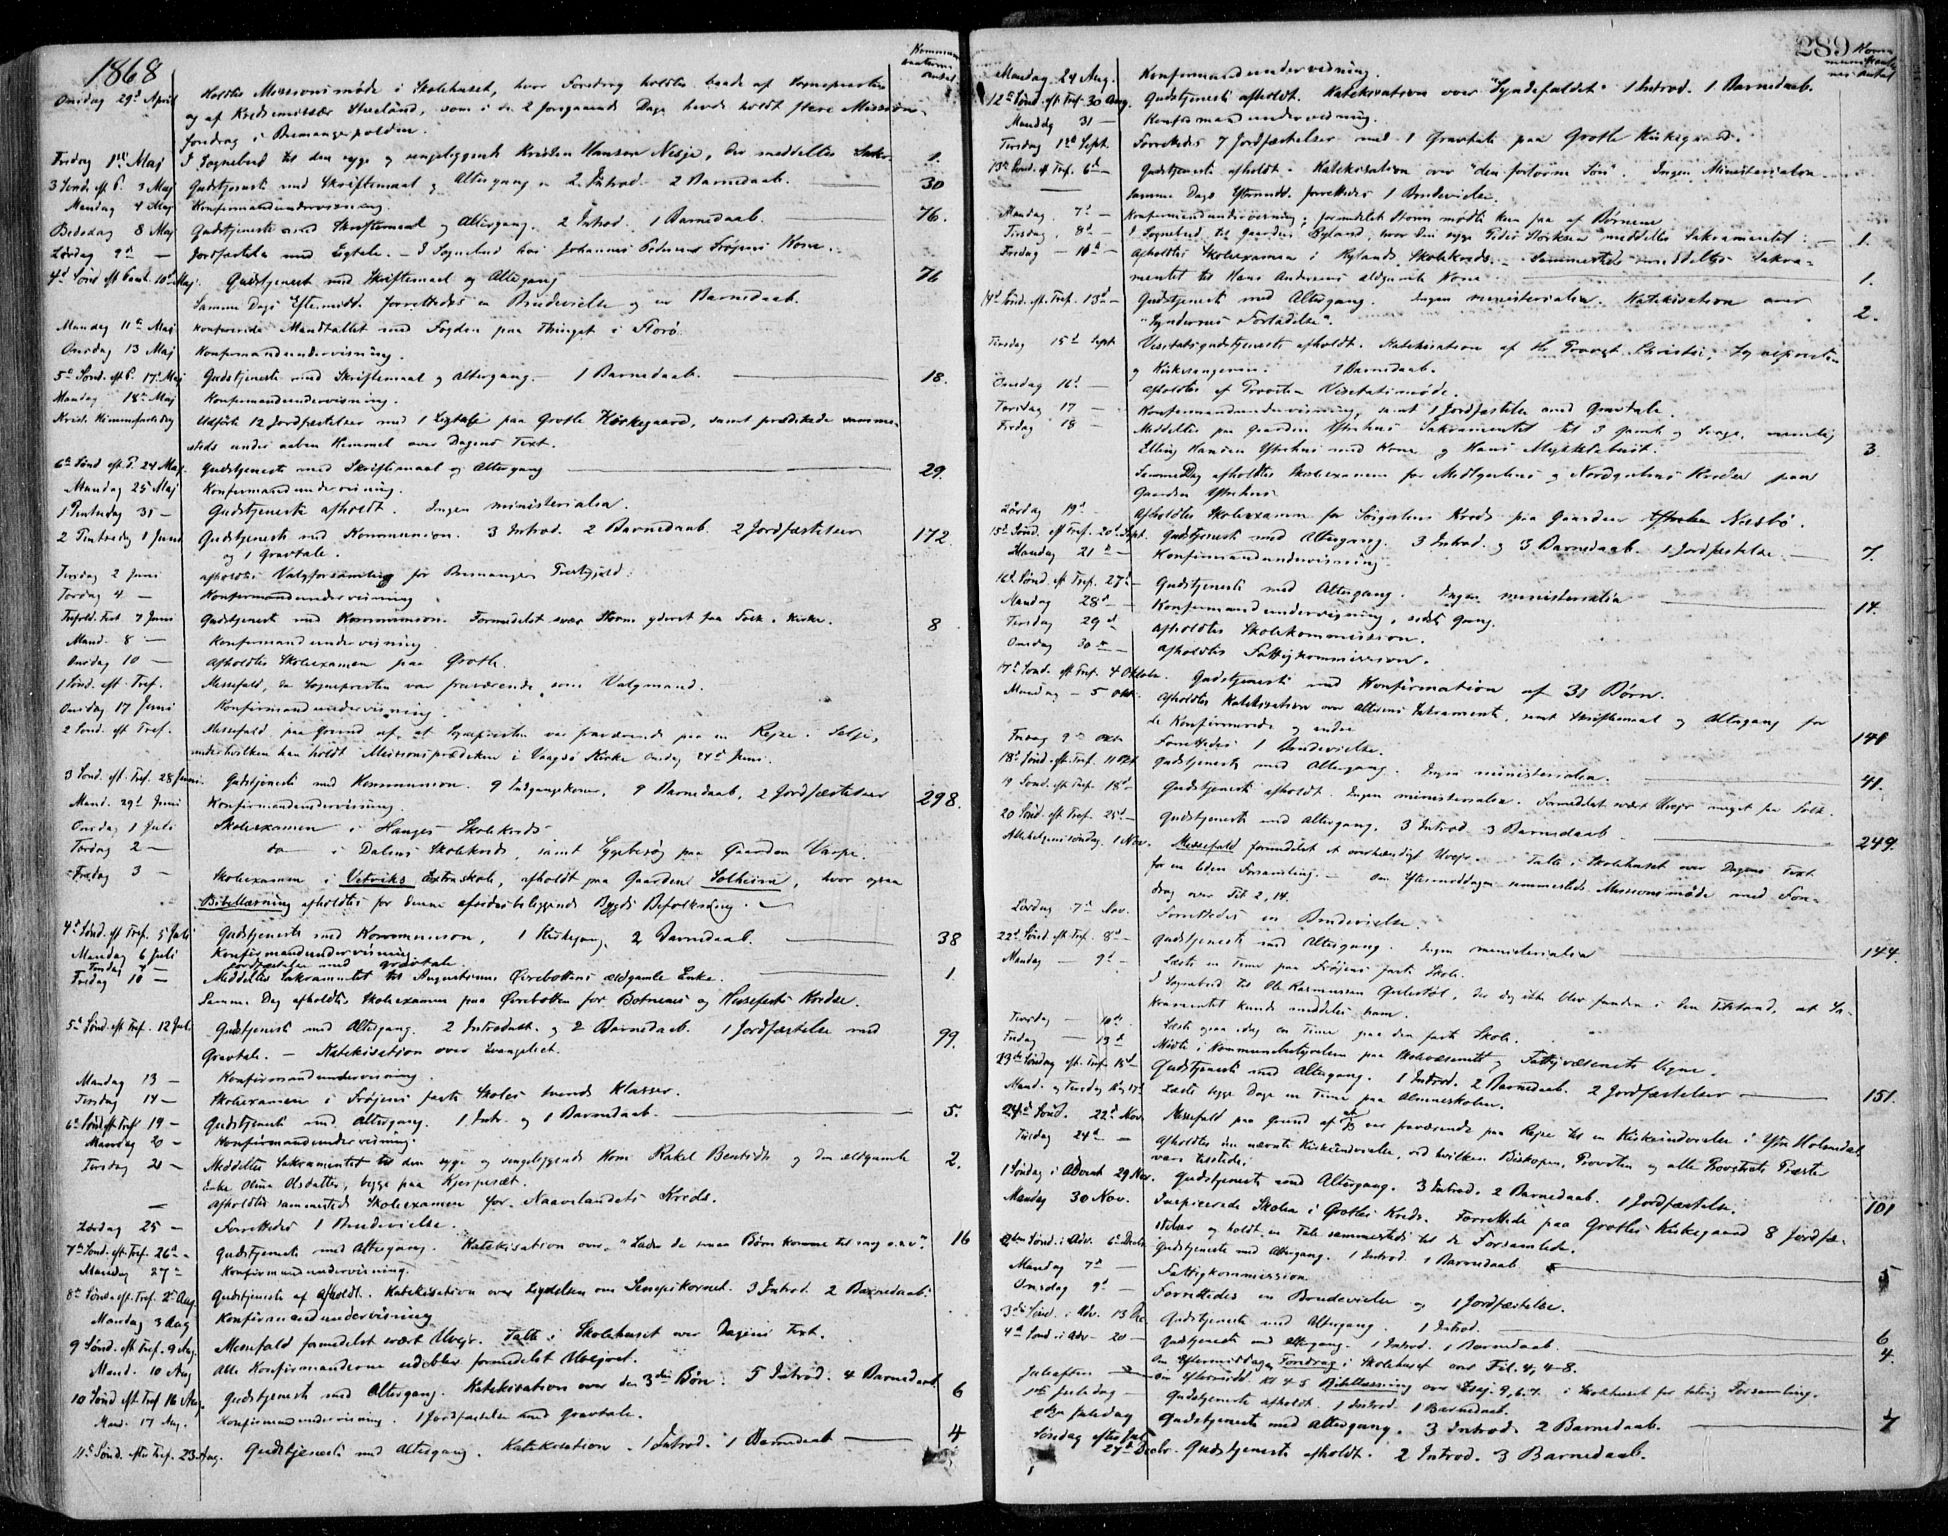 1868
Kommunikanternes Antal
Onsdag 29de April Holdtes Missionsmøde i Skolehuset, hvor Foredrag holdtes baade af Sognepræsten
og af Kredsemissær, som i de 2 foregaaende Dage havde holdt flere Missions-
foredrag i Bremangerpolden.
Fredag 1ste Maj I Sognebud til den syge og sengeliggende Kristen Hansen Nesje, der meddeltes Sakr. 1.
3 Sønd. eft. P. 3 Maj Gudstjeneste med Skriftemaal og Altergang. 2 Introd. 2 Barnedaab. 30
Mandag 4 Maj Konfirmandundervisning.
Bededag 8 Maj Gudstjeneste med Skriftemaal og Altergang. 2 Introd. 1 Barnedaab. 76.
Lørdag 9de — Jordfæstelse med Ligtale. — I Sognebud hos Johannes Pedersens Kone.
4de Sønd. eft. Paask. 10de Maj. Gudstjenest med Skriftemaal og Altergang 76
Samme Dags Eftermidd. forrettedes en Brudevielse og en Barnedaab.
Mandag 11te Maj Konfererede Mandtallet med Fogden paa Thinget i Florø.
Onsdag 13 Maj Konfirmandundervisning.
5te Sønd. eft. P. 17 Maj Gudstjeneste med Skriftemaal og Altergang. — 1 Barnedaab. 18.
Mandag 18de Maj Konfirmandundervisning.
Krist. Himmelfartsdag Udførte 12 Jordfæstelser med 1 Ligtale paa Grotle Kirkegaard, samt prædikede samme-
steds under aaben Himmel over Dagens Text.
6te Sønd. eft. P. 24 Maj. Gudstjeneste med Skriftemaal og Altergang 29.
Mandag 25 Maj Konfirmandundervisning.
1 Pintsedag 31 — Gudstjeneste afholdt. Ingen ministerialia.
2 Pintsedag 1 Juni Gudstjeneste med Kommunion. 3 Introd. 2 Barnedaab. 2 Jordfæstelser 172.
og 1 Gravtale.
Tirsdag 2 Juni afholdtes Valgforsamling for Bremanger Præstegjeld.
Torsdag 4 — Konfirmandundervisning.
Trefold. Fest 7 Juni Gudstjeneste med Kommunion. Formedelst svær Storm yderst faa Folk i Kirke. 8
Mand. 8 — Konfirmandundervisning.
Onsdag 10 — Afholdtes Skoleexamen paa Grotle.
1 Sønd. eft. Tref. Messefald, da Sognepræsten var fraværende som Valgmand.
Onsdag 17 Juni Konfirmandundervisning.
2 Sønd. eft Tref. Messefald paa Grund af, at Sognepræsten var fraværende paa en Rejse i Selje,
under hvilken han holdt Missionsprædiken i Vaagsø Kirke Onsdag 24de Juni.
3 Sønd. eft. Tref. 28 Juni. Gudstjeneste med Kommunion. 9 Indgangskoner, 9 Barnedaab, 2 Jordfæstelser 298.
Mand. 29de Juni Konfirmandundervisning.
Onsdag 1 Juli Skoleexamen i Hauges Skolekreds
Torsdag 2 — do — i Dalens Skolekreds, samt Sygebesøg paa Gaarden
Fredag 3 — Skoleexamen i Vetviks Extraskole, afholdt paa Gaarden Solheim, hvor ogsaa
Bibellæsning afholdtes for denne afsidesbeliggende Bygds Befolkning.
4de Sønd. eft Tref. 5 Juli Gudstjeneste med Kommunion, 1 Kirkegang, 2 Barnedaab. 38
Mandag 6 Juli Konfirmandundervisning
Tirsdag 7 — Jordfæstelse med gravtale.
Fredag 10 — Meddeltes Sakramentet til Augustinus Ørebottens ældgamle Enke. 1.
Samme Dag afholdtes Skoleexamen paa Ørebotten for Botnens og Husefests Kredse.
5te Sønd. eft Tref. 12 Juli Gudstjeneste med Altergang. 2 Introdukt. og 2 Barnedaab. 1 Jordfæstelse med 99.
Gravtale. — Katekisation over Evangeliet.
Mandag 13 — Konfirmandundervisning.
Tirsdag 14 — Skoleexamen i Frøjens faste Skoles Klasser.
6te Sønd eft Tref 19 — Gudstjeneste med Altergang. 1 Intr. og 1 Barnedaab. 5.
Mandag 20 — Konfirmandundervisning.
Tirsdag 21 — Meddeltes Sakramentet til den syge og sengeliggende Kone Rakel og den ældgamle 2.
Enke Oline Olsdatter, begge paa
— Afholdtes sammesteds Skoleexamen for Naavelandets Kreds.
Lørdag 25 — Forrettedes 1 Brudevielse.
7de Sønd. eft Tref. 26de — Gudstjeneste med Altergang. Katekisation over, "Lader de smaa Børn komme til mig o.s.v." 16
Mandag 27 — Konfirmandundervisning.
8de Sønd. eft. Tref. 2 Aug. Gudstjeneste afholdt. Katekisation over Lignelsen om Senepskornet. 3 Introd. 2 Barnedaab.
Mandag 3 Aug Konfirmandundervisning
9 Sønd. eft Tref. 9 Aug. Messefald formedelst svært Uvejr. Talte i Skolehuset over Dagens Text.
Mand. 10 Aug Alle Konfirmanderne udeblev formedelst Uvejret.
10 Sønd eft Tref 16 Aug. Gudstjeneste med Altergang. Katekisation over den 3die Bøn. 5 Introd. 4 Barnedaab 6
Mand. 17 Aug. Konfirmandundervisning. 1 Jordfæstelse med Gravtale.
11te Sønd. efter Tref. 23 Aug. Gudstjeneste med Altergang. Katekisation. 1 Introd. 1 Barnedaab 4.
289
Kommunikanternes Antal
Mandag 24 Aug. Konfirmandundervisning.
12te Sønd. eft Tref. 30 Aug. Gudstjeneste afholdt. Katekisation over "Syndefaldet". 1 Introd. 1 Barnedaab.
Mandag 31 — Konfirmandundervisning.
Tirsdag 1ste Sept. Forrettedes 7 Jordfæstelser med 1 Gravtale paa Grotle Kirkegaard.
13de Sønd. ef Tref. 6te Gudstjeneste afholdt. Katekisation over "den fortabte Søn". Ingen Ministerialia
— Samme Dags Eftermidd. forrettedes 1 Brudevielse.
Mandag 7de — Konfirmandundervisning; formedelst Storm mødte kun faa af Børnene.
Tirsdag 8de — I Sognebud til Gaarden Ryland, hvor den syge Peder meddeltes Sakramentet. 1.
Torsdag 10de — Afholdtes Skoleexamen i Rylands Skolekreds. — Sammesteds meddeltes Sakra-
mentet til Hans Andersens aldgamle Kone. 1.
14de Sønd. eft. Tref. 13de — Gudstjeneste med Altergang. Ingen ministerialia. Katekisation over 2.
"Syndernes Forladelse".
Tirsdag 15de Sept. Visitatsgudstjeneste afholdt. Katekisation af Hr Provst Christie,
og Kirkesangeren. 1 Barnedaab.
Onsdag 16de — Afholdtes af Provsten Visitatsmøde.
Torsdag 17 — Konfirmandundervisning, samt 1 Jordfæstelse med Gravtale.
Fredag 18 — Meddeltes paa Gaarden Ytrehus Sakramentet til 3 gamle og svage, nemlig
Elling Hansen Ytrehus med Kone og Hans Myklebust. 3
Samme Dag afholdtes Skoleexamen for Midtgulens og Nordgulens Kredse paa
Gaarden Ytrehus.
Lørdag 19de — Afholdtes Skoleexamen for Sørgulens Kreds paa Gaarden Næsbø.
15de Sønd. eft Tref. 20de Sept. Gudstjeneste med Altergang. 3 Introd. og 3 Barnedaab. 1 Jordfæstelse 7.
Mandag 21de — Konfirmandundervisning.
16de Sønd. eft Tref. 27de — Gudstjeneste med Altergang. Ingen ministerialia 14.
Mandag 28de — Konfirmandundervisning, sidste Gang.
Tirsdag 29de Afholdtes Skolekommission.
Onsdag 30te — Afholdtes Fattigkommission.
17de Sønd. eft Tref. 4 Oktober. Gudstjeneste med Konfirmation af 31 Børn.
Mandag — 5 Okt. Afholdtes Katekisation over Alterens Sakramente, samt Skriftemaal og Altergang for
de Konfirmerede og andre 148
Fredag 9de Okt. Forrettedes 1 Brudevielse.
18de Sønd. eft. Tref. 11 Okt. Gudstjeneste med Altergang. Ingen ministerialia. 41.
19 Sønd. eft Tref. 18de — Gudstjeneste afholdt. Ingen ministerialia. Formedelst svært Uvejr meget faa Folk.
20 Sønd. eft Tref. 25de — Gudstjeneste med Altergang, 3 Introd. 3 Barnedaab 249.
Allehelgenssøndag 1 Nov. Messefald formedelst et overhændigt Uvejr. Talte i Skolehuset over Dagens Text
for en liden Forsamling. — Om Eftermiddagen sammesteds Missionsmøde med Fore-
drag over Tit 2, 14.
Lørdag 7de Nov. Forrettedes en Brudevielse.
22de Sønd eft Tref. 8de — Gudstjeneste med Altergang. Ingen ministerialia 144.
Mandag — 9de — Læste en Time paa Frøjens faste Skole.
I Sognebud til Ole Rasmussen, der dog ikke blev funden i den Tilstand, at Sa-
kramentet kunde meddeles ham.
Tirsdag — 10de Læste ogsaa idag en Time paa den faste Skole.
Fredag — 13de Mødte i Kommunebestyrelsen paa Skolevæsenets og Fattigvæsenets Vegne.
23de Søndag eft Tref. 15de — Gudstjeneste med Altergang. 1 Introd. 2 Barnedaab. 2 Jordfæstelser 151.
Mand. og Tirsdag 16 og 17de Læste begge Dage en Time paa Almueskolen.
24de Sønd. 22de Nov. Messefald paa Grund af at jeg var fraværende paa Rejse til en Kirkeindvielse i Ytre Holmedal.
Tirsdag 24de — Afholdtes den nævnte Kirkeindvielse, ved hvilken Biskopen, Provsten og alle Provstiets Præster
vare tilstede.
1 Søndag i Advent 29 Nov. Gudstjeneste med Altergang. 3 Introd. 2 Barnedaab. 1 Jordfæstelse. 101
Mandag 30 Nov. Inspicerede Skolen i Grotle Kreds. Forrettede paa Grotle Kirkegaard 8 Jordfæ-
stelser og holdt en Tale sammesteds til de Forsamlede.
2den Sønd. i Adv. 6te Decbr. Gudstjeneste med Altergang. 1 Introd. 1 Barnedaab. 5
Mandag 7de — Fattigkommission
Onsdag 9de Forrettedes en Brudevielse og 1 Jordfæstelse.
3die Sønd. i Adv. 13 De Gudstjeneste med Altergang. 1 Introd. 6
4de Sønd. i Adv. 20 — Gudstjeneste med Altergang. 1 Introd. 1 Barnedaab. 4.
Om Eftermiddagen Foredrag i Skolehuset over Fil. 4, 4–8.
Juleaften Om Eftermidd. Kl 4-5 Bibellæsning over Esaj. 9, 6. 7. i Skolehuset for talrig Forsamling.
1ste Juledag — Gudstjeneste afholdt. 1 Introd. 1 Barnedaab.
2den Juledag Gudstjeneste med Altergang. 3 Introd. 2 Barnedaab. 7
Søndag efter Jul
27de Decbr. Gudstjeneste afholdt. 2 Introd. 3 Barnedaab.